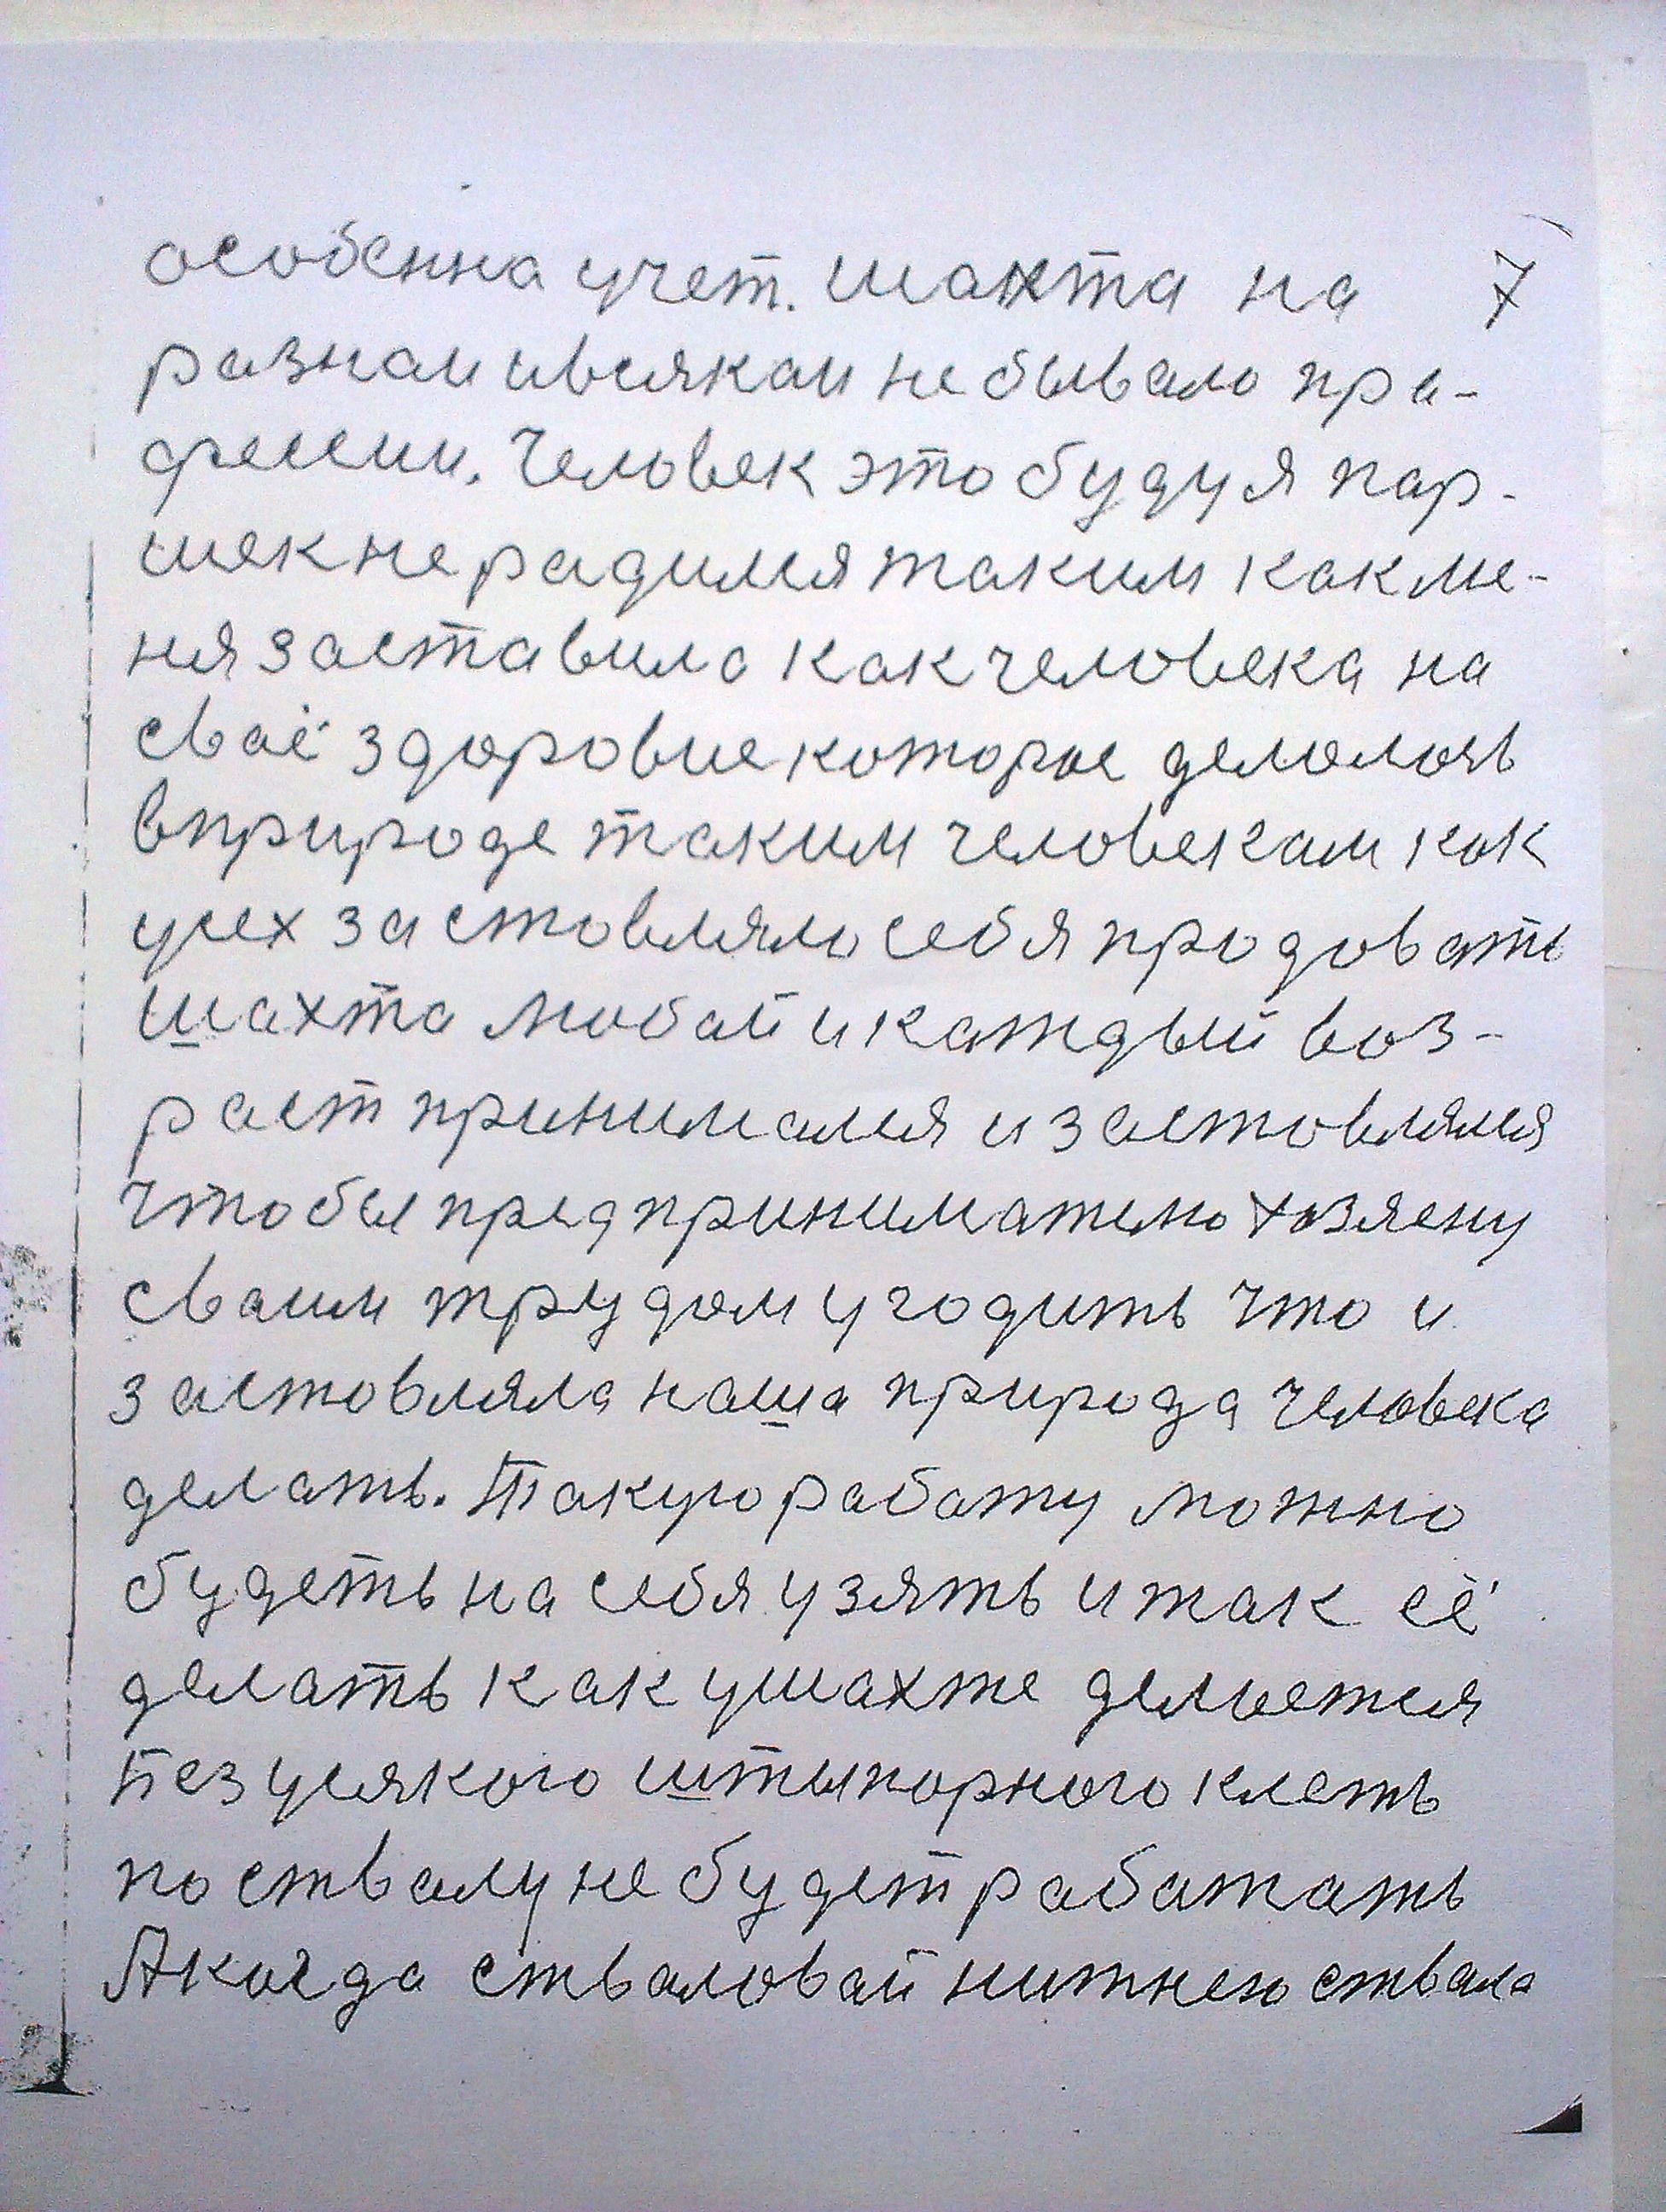 особенна учет. шахта на 7
разнаи ивсякаи не бывало пра-
фессии. Человек это буду я пар-
шек не радился таким как ме-
ня заставила как человека на
сваё здоровие которое делалось
в природе таким человекам как
усех заставляло себя продовать
шахта любай и каждый воз-
раст принимался и заставлялся
чтобы предпринимателю хозяену
сваим трудом угодить что и
заставляла наша природа человека
делать. Такую работу можно
будеть на себя узять и так её
делать как у шахте делается
Без усякого штыпорного клеть
по стволу не будет работать
А когда стваловай нижнею ствала